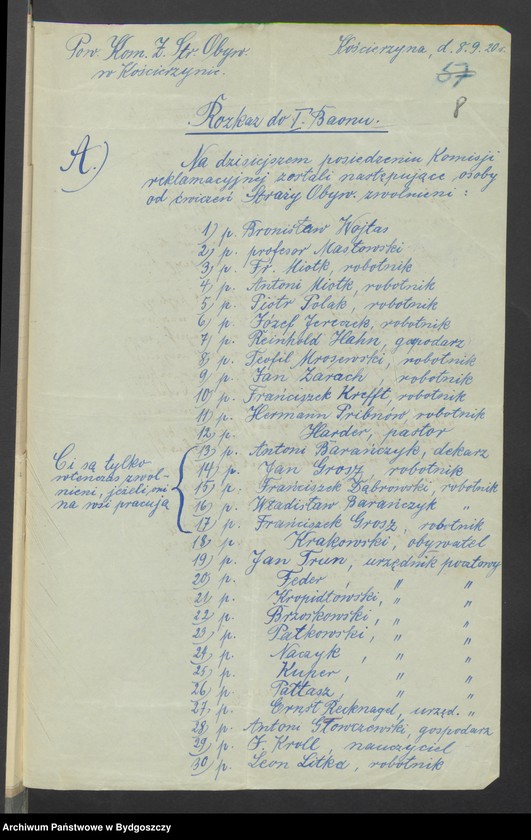 Pow. Kom. Z. Str. Obyw.
w Kościerzynie.
Kościerzyna, d. 8.9.20 r.
57
8
Rozkaz do I. Baonu.
A.)
Na dzisiejszem posiedzeniu Komisji
reklamacyjnej zostali następujące osoby
od ćwiczeń Straży Obyw. zwolnieni :
1) p. Bronisław Wojtas
2) p. profesor Masłowski
3) p. Fr. Miotk, robotnik
4) p. Antoni Miotk, robotnik
5) p. Piotr Polak, robotnik
6) p. Józef Jereczek, robotnik
7) p. Reinhold Hahn, gospodarz
8) p. Teofil Mroszewski, robotnik
9) p. Jan Zarach robotnik
10) p. Franciszek Krefft, robotnik
11) p. Hermann Pribnow, robotnik
12) p. Harder, pastor
13) p. Antoni Barańczyk, dekarz
14) p. Jan Grosz, robotnik
15) p. Franciszek Dąbrowski, robotnik
16) p. Władisław Barańczyk "
17) p. Franciszek Grosz, robotnik
Ci są tylko
wtenczas zwol-
nieni, jeżeli oni
na wsi pracują
18) p. Krakowski, obywatel
19) p. Jan Trun, urzędnik pocztowy
20) p. Feder, " "
21) p. Kropidłowski, " "
22) p. Brzoskowski, " "
23) p. Patkowski, " "
24) p. Naczyk, " "
25) p. Kuper, " "
26) p. Pałłasz, " "
27) p. Ernst Recknagel, urzęd. "
28) p. Antoni Głowczewski, gospodarz
29) p. F. Kroll, nauczyciel
30) p. Leon Litka, robotnik
Archiwum Państwowe w Bydgoszczy